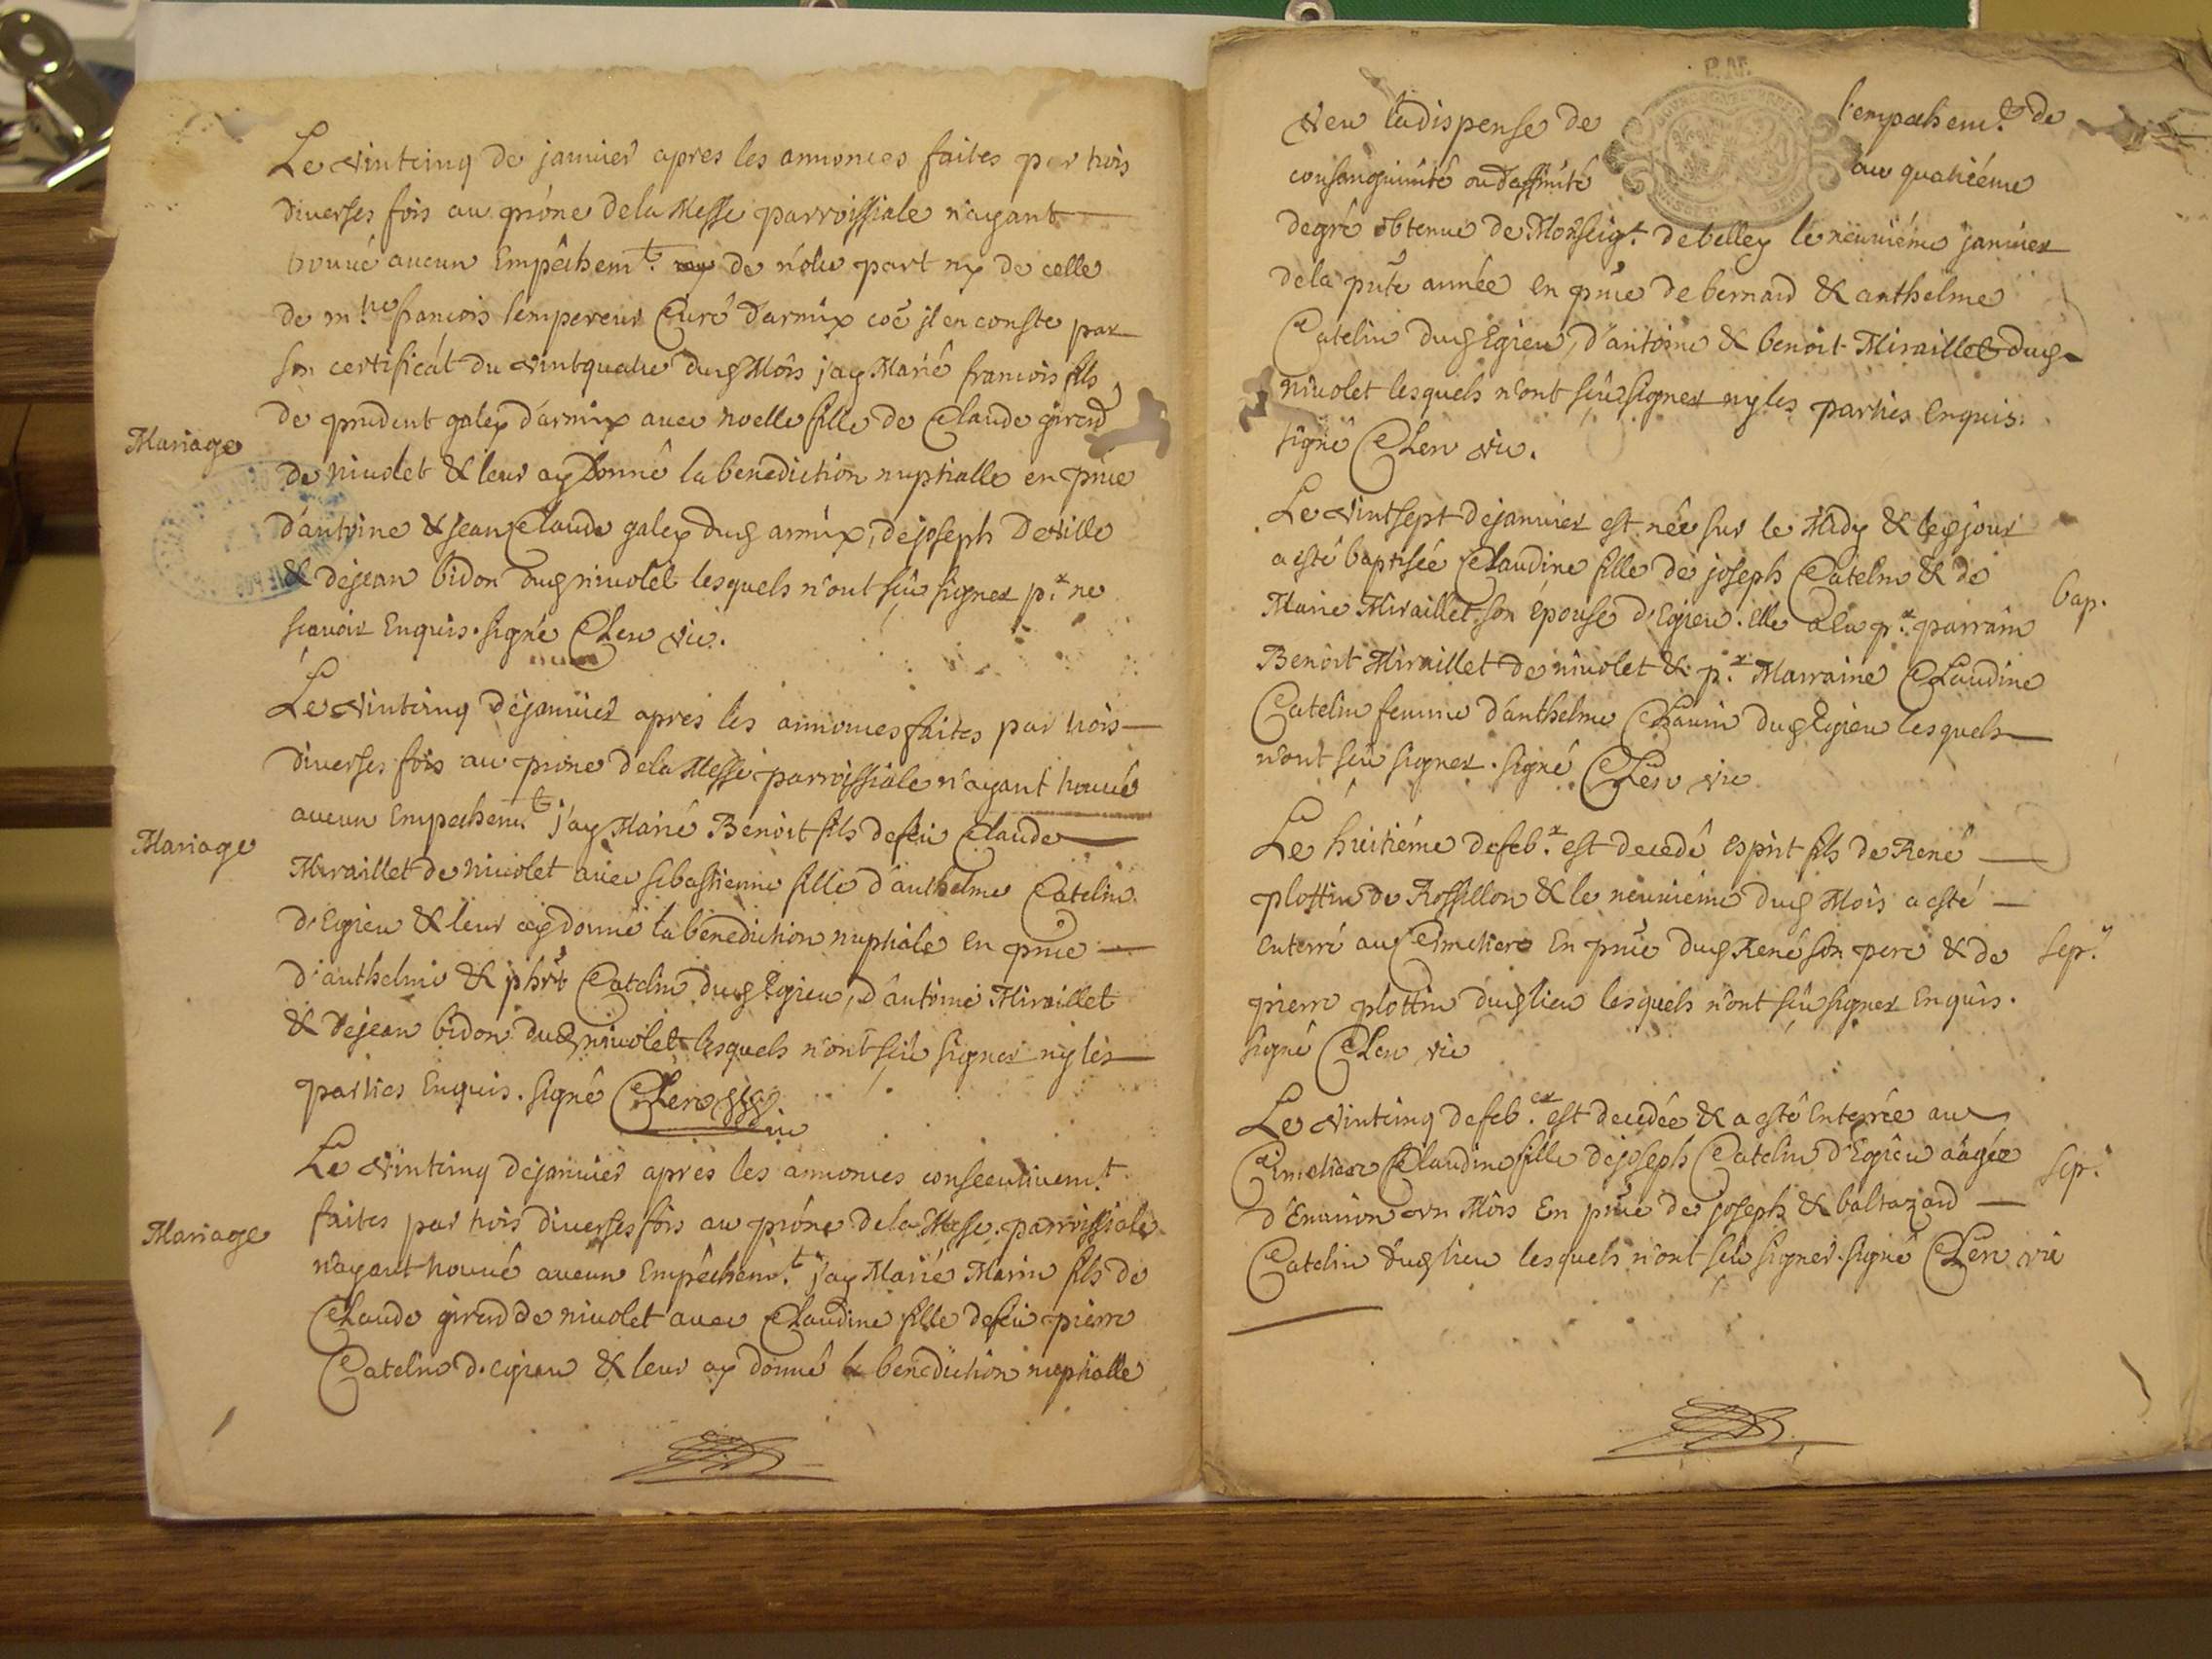 Le vintcinq de janvier apres les annonces faites par trois
diverses fois au prône de la Messe parroissiale n'ayant
trouvé aucun Empêchem.t de nôtre part ny de celle
de m.re francois lempereur Curé d'armix coē il en conste par
son certificát du vintquatre dud Môis j'ay Marié francois fils
de prudent galey d'armix avec noelle fille de Claude girerd
Mariage
de nivolet & leur ay donné la benediction nuptialle en pn̄ce
d'antoine & jean Claude galey dud armix, de joseph Deville
& de jean bidon dud nivolet lesquels n'ont sçû signer p.r ne
scavoir Enquis. signé Clerc vic.
Le vintcinq de janvier apres les annonces faites par trois
diverses fois au prône de la Messe parroissiale n'ayant trouvé
aucun Empechem.t j'ay Marié Benoit fils de feu Claude
Mariage
Miraillet de nivolet avec sebastienne fille d'anthelme Catelin
d'Egieu & leur ay donné la benediction nuptiale en pn̄ce
d'anthelme & Catelin dud Egieu, d'antoine Miraillet
& de jean bidon dud nivolet lesquels n'ont sçû signer ny les
parties Enquis. signé Clerc vic
Le vintcinq de janvier apres les annonces consecutivem.t
faites par trois diverses fois au prône de la Messe parroissiale
Mariage
n'ayant trouvé aucun Empêchem.t j'ay Marié Marin fils de
Claude girerd de nivolet avec Claudine fille de feu pierre
Catelin d'egieu & leur ay donné la benediction nuptialle
veu la dispense de l'empechem.t de
consanguinité ou d'affinité au quatriéme
degré obtenue de Monseig.r de belley le neuviéme janvier
de la pn̄te année en pn̄ce de bernard & anthelme
Catelin dud Egieu, d'antoine & benoit Miraillet dud
nivolet lesquels n'ont sçû signer ny les parties Enquis.
signé Clerc vic.
Le vintsept de janvier est née sur le Midy & led jour
a esté baptisée Claudine fille de joseph Catelin & de
bap.
Marie Miraillet son épouse d'Egieu. Elle a Eu p.r parrain
Benoit Miraillet de nivolet & p.r Marraine Claudine
Catelin femme d'anthelme Chavin dud Egieu lesquels
n'ont sçû signer. signé Clerc vic
Le huitiéme de feb.r est decedé Esprit fils de René
plottin de Rossillon & le neuviéme dud Mois a esté
enterré au Cimetiere En pn̄ce dud René son pere & de
sep.
pierre plottin dud lieu lesquels n'ont sçû signer Enquis.
signé Clerc vic
Le vintcinq de feb.er est decedée & a esté Enterrée au
Cimetiere Claudine fille de joseph Catelin d'Egieu aagée
sep.
d'Environ vn Môis En pn̄ce de joseph & baltazard
Catelin dud lieu lesquels n'ont sçû signer. signé Clerc vic